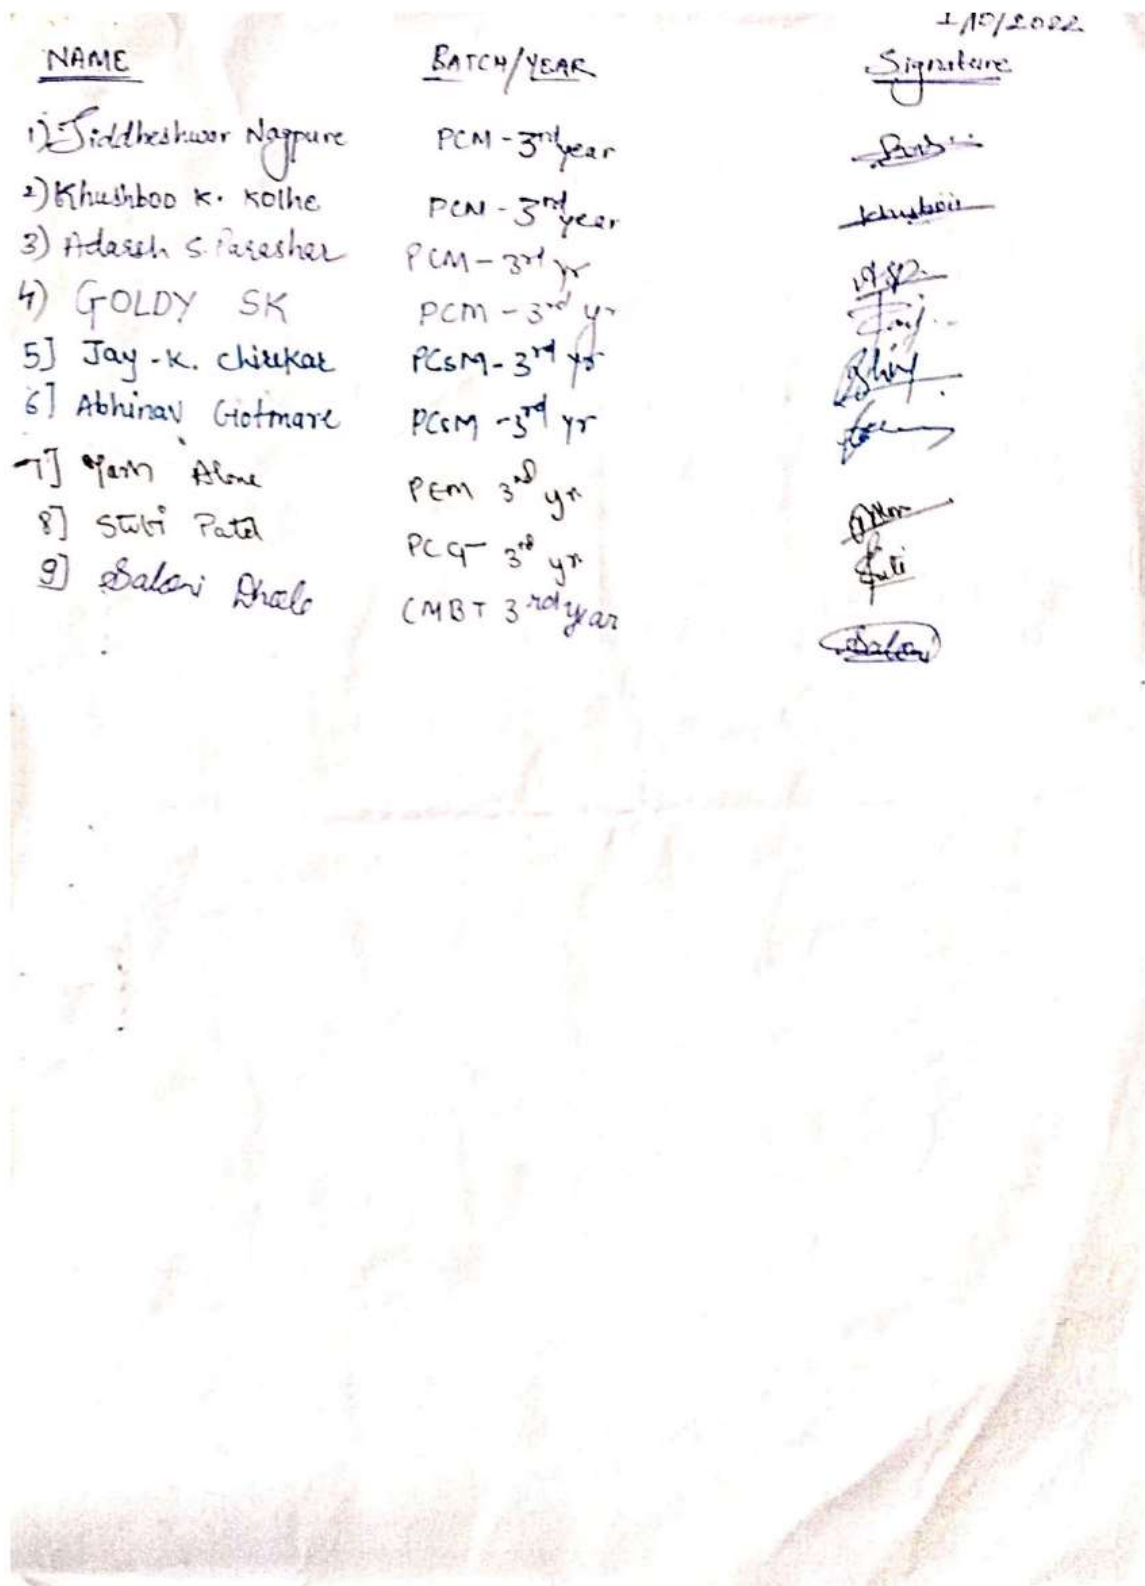 1/10/2022
NAME BATCH/YEAR Signature
1) Siddheshwar Nagpure PCM - 3rd year
2) Khushboo K. Kolhe PCM - 3rd year Khushboo
3) Adarsh S. Parashar PCM - 3rd yr
4) GOLDY SK PCM - 3rd yr
5] Jay - K. Chirekar PCsM - 3rd yr
6] Abhinav Gotmare PCsM - 3rd yr
7] Yash Alone PEM 3rd yr
8] Stuti Patel PCG 3rd yr
9] Saloni Dhale CMBT 3rd year Saloni